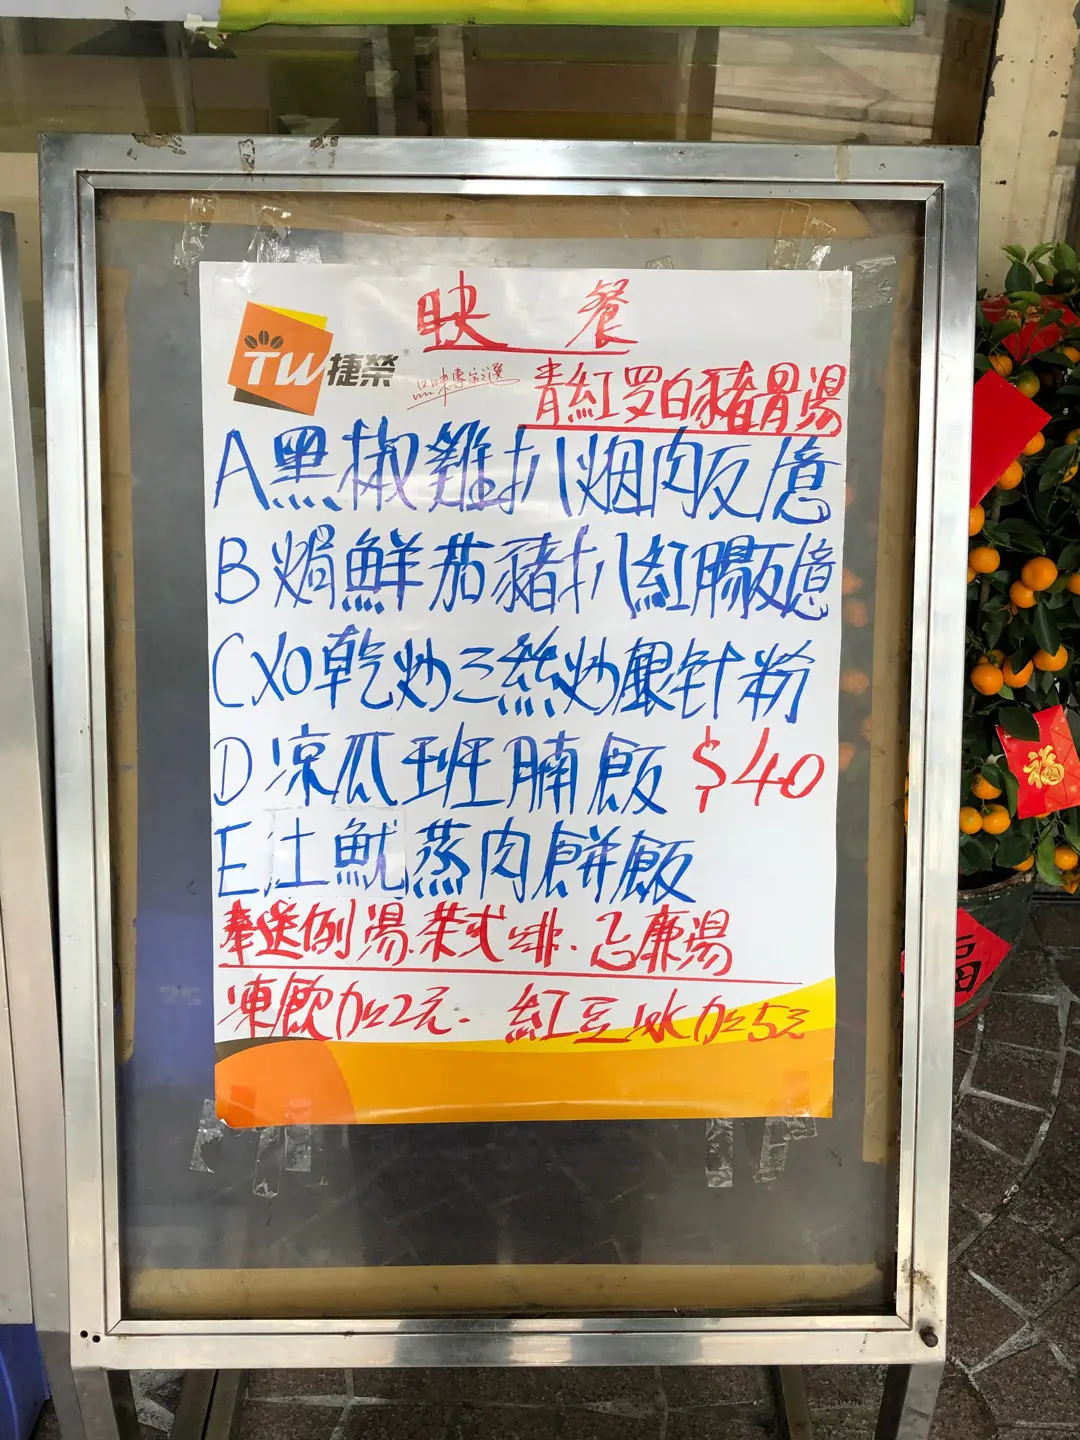 快 餐
TW 捷榮
品味專家之選
青紅罗白豬骨湯
A黑椒雞扒烟肉飯/意
B焗鮮茄豬扒紅腸飯/意
CXO乾炒三絲炒銀針粉
D凉瓜班腩飯 $40
E土魷蒸肉餅飯
奉送例湯.茶或啡.忌廉湯
凍飲加2元. 紅豆冰加5元
福
福